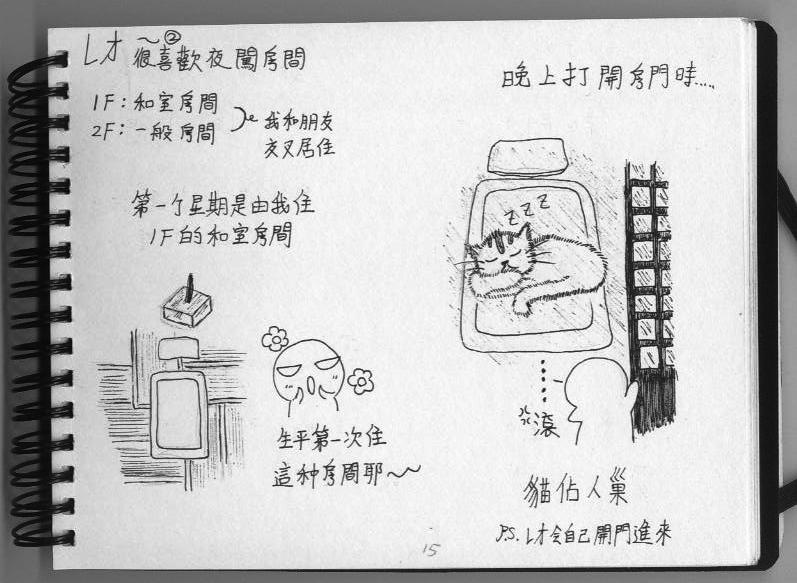 Lオ~②
很喜歡夜闖房間
1F:和室房間
2F:一般房間
我和朋友
交叉居住
第一个星期是由我住
1F的和室房間
生平第一次住
這种房間耶~~
晚上打開房門時....
ZZZ
滾
貓佔人巢
P.S. Lオ会自己開門進來
15